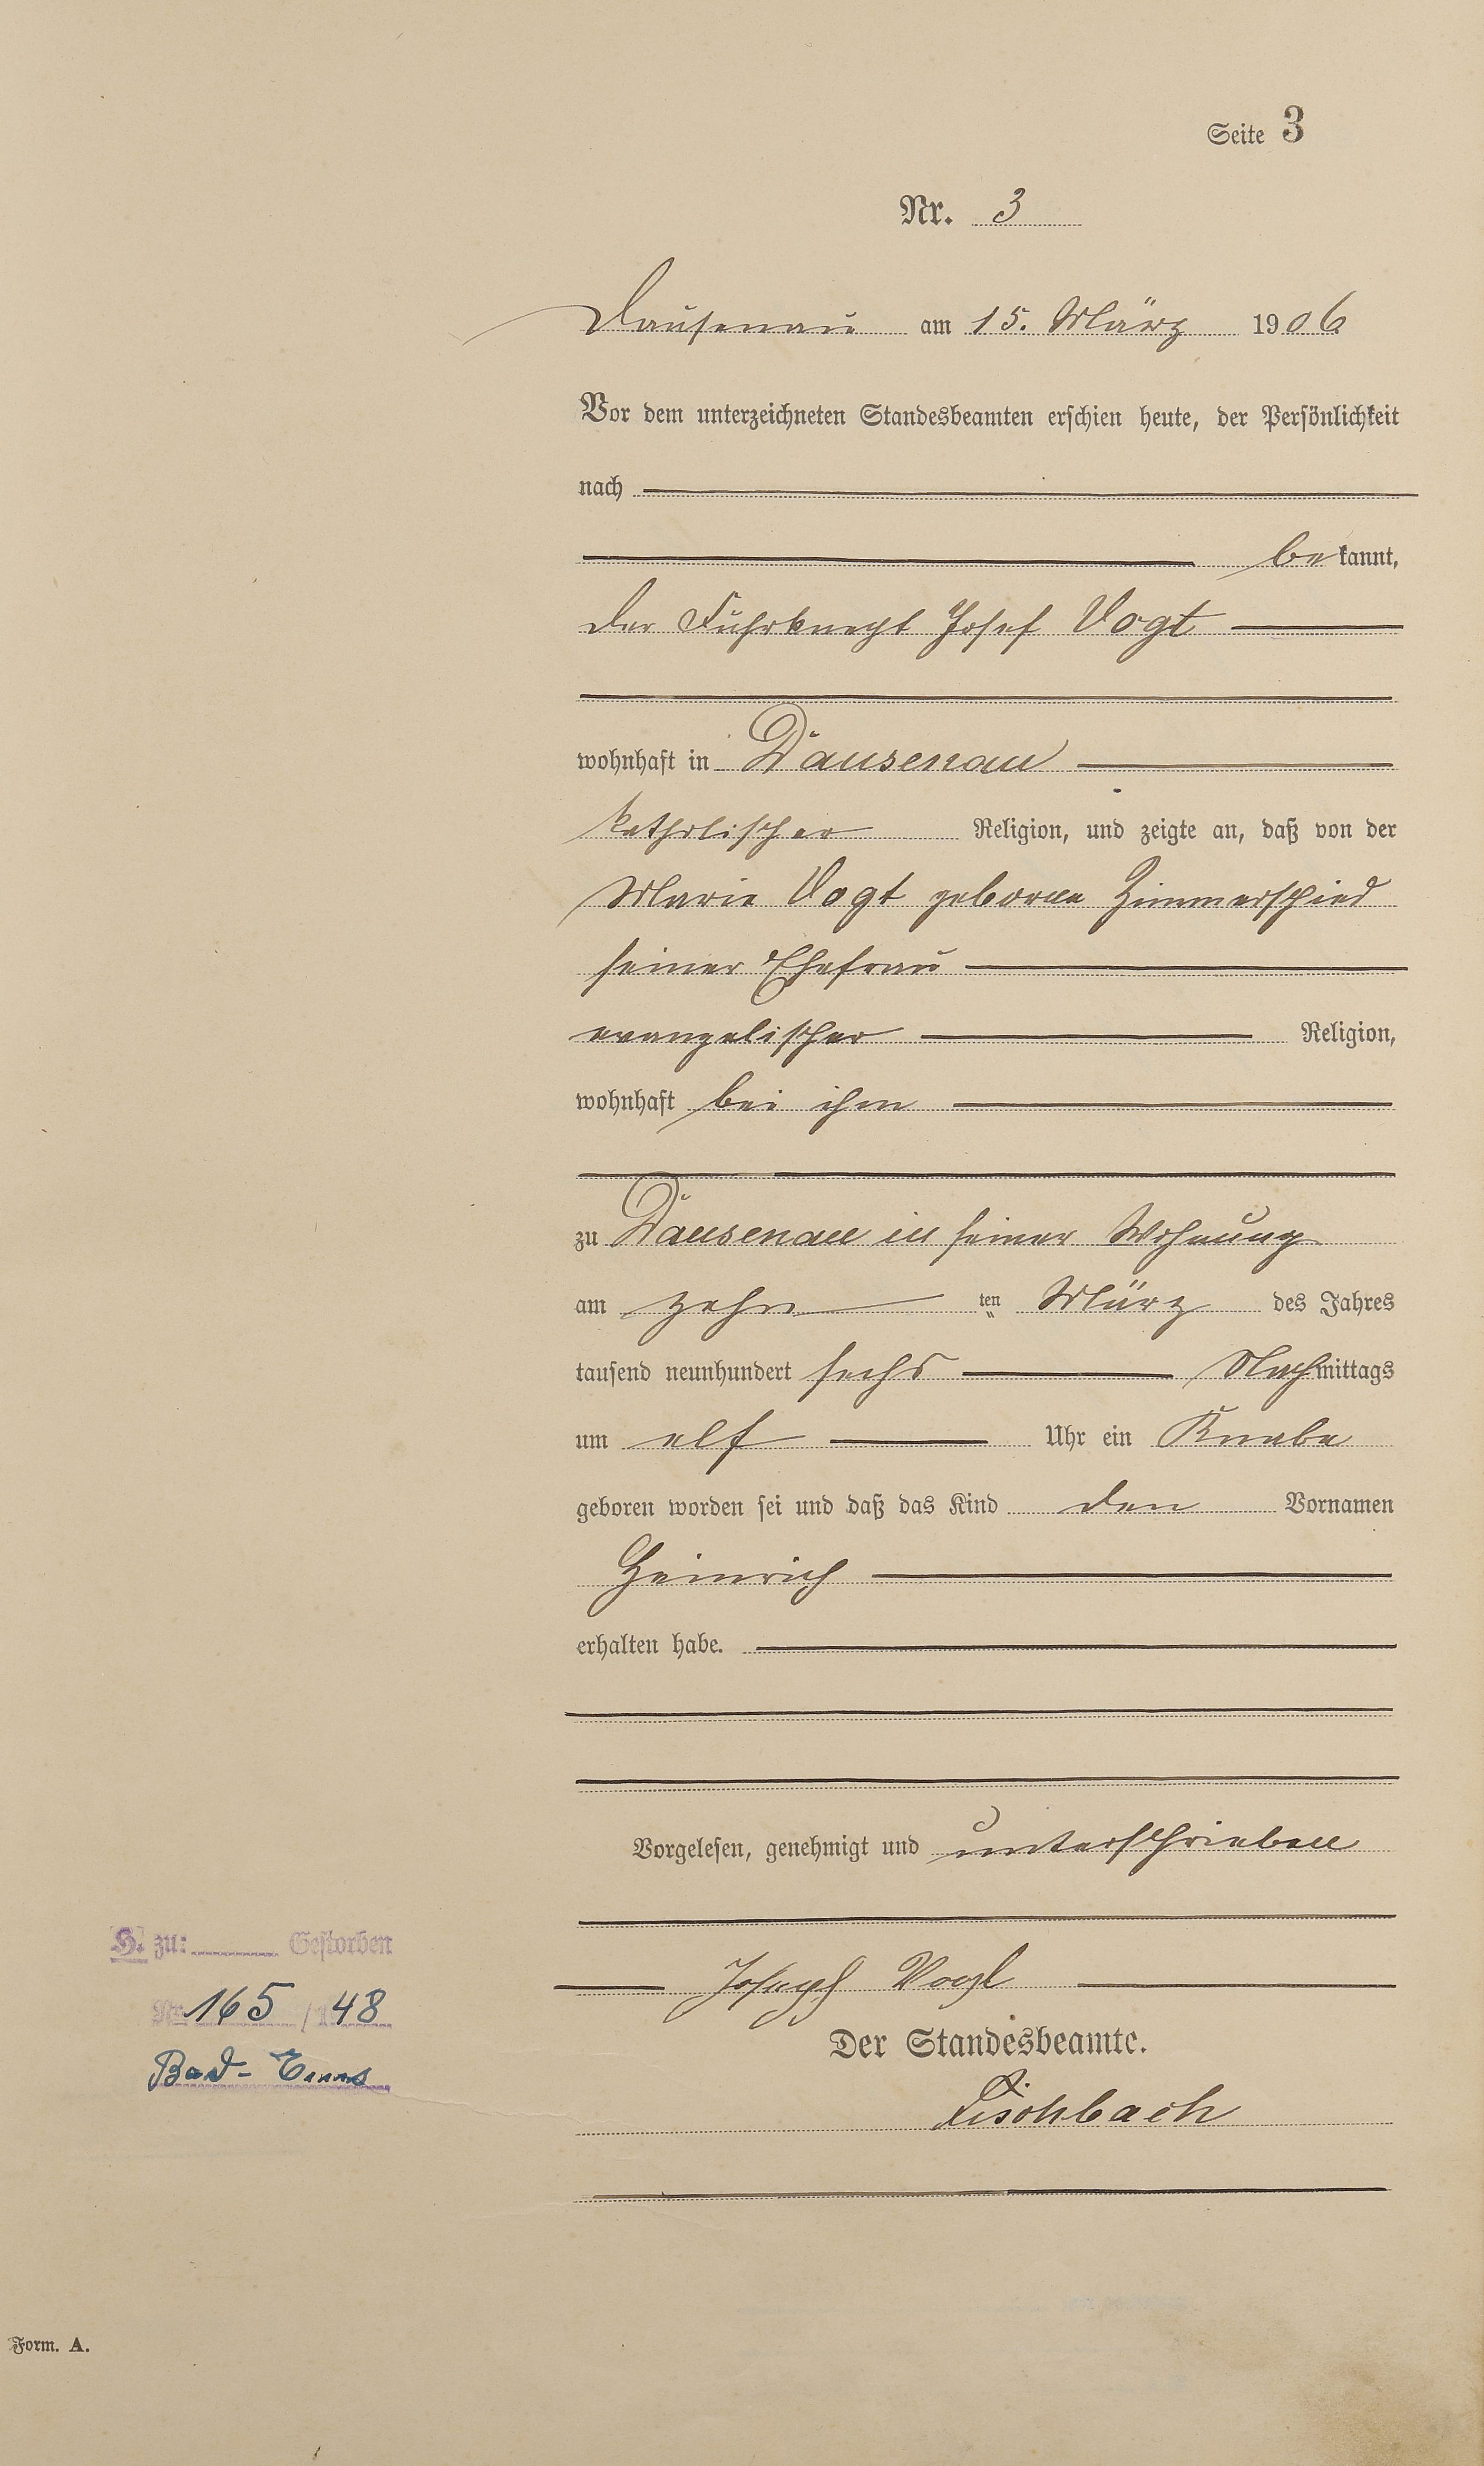 Seite 3
Nr. 3
Dausenau am 15. März 1906
Vor dem unterzeichneten Standesbeamten erschien heute, der Persönlichkeit
nach
bekannt,
der Fuhrknecht Josef Vogt
wohnhaft in Dausenau
katholischer Religion, und zeigte an, daß von der
Marie Vogt geborene Zimmerschied
seiner Ehefrau
evangelischer Religion,
wohnhaft bei ihm
zu Dausenau in seiner Wohnung
am zehn ten März des Jahres
tausend neunhundert sechs Nachmittags
um elf Uhr ein Knabe
geboren worden sei und daß das Kind den Vornamen
Heinrich
erhalten habe.
Vorgelesen, genehmigt und unterschrieben
Joseph Vogt
Der Standesbeamte.
Fischbach
H. zu: Gestorben
Nr. 165 / 48
Bad-Ems
Form. A.